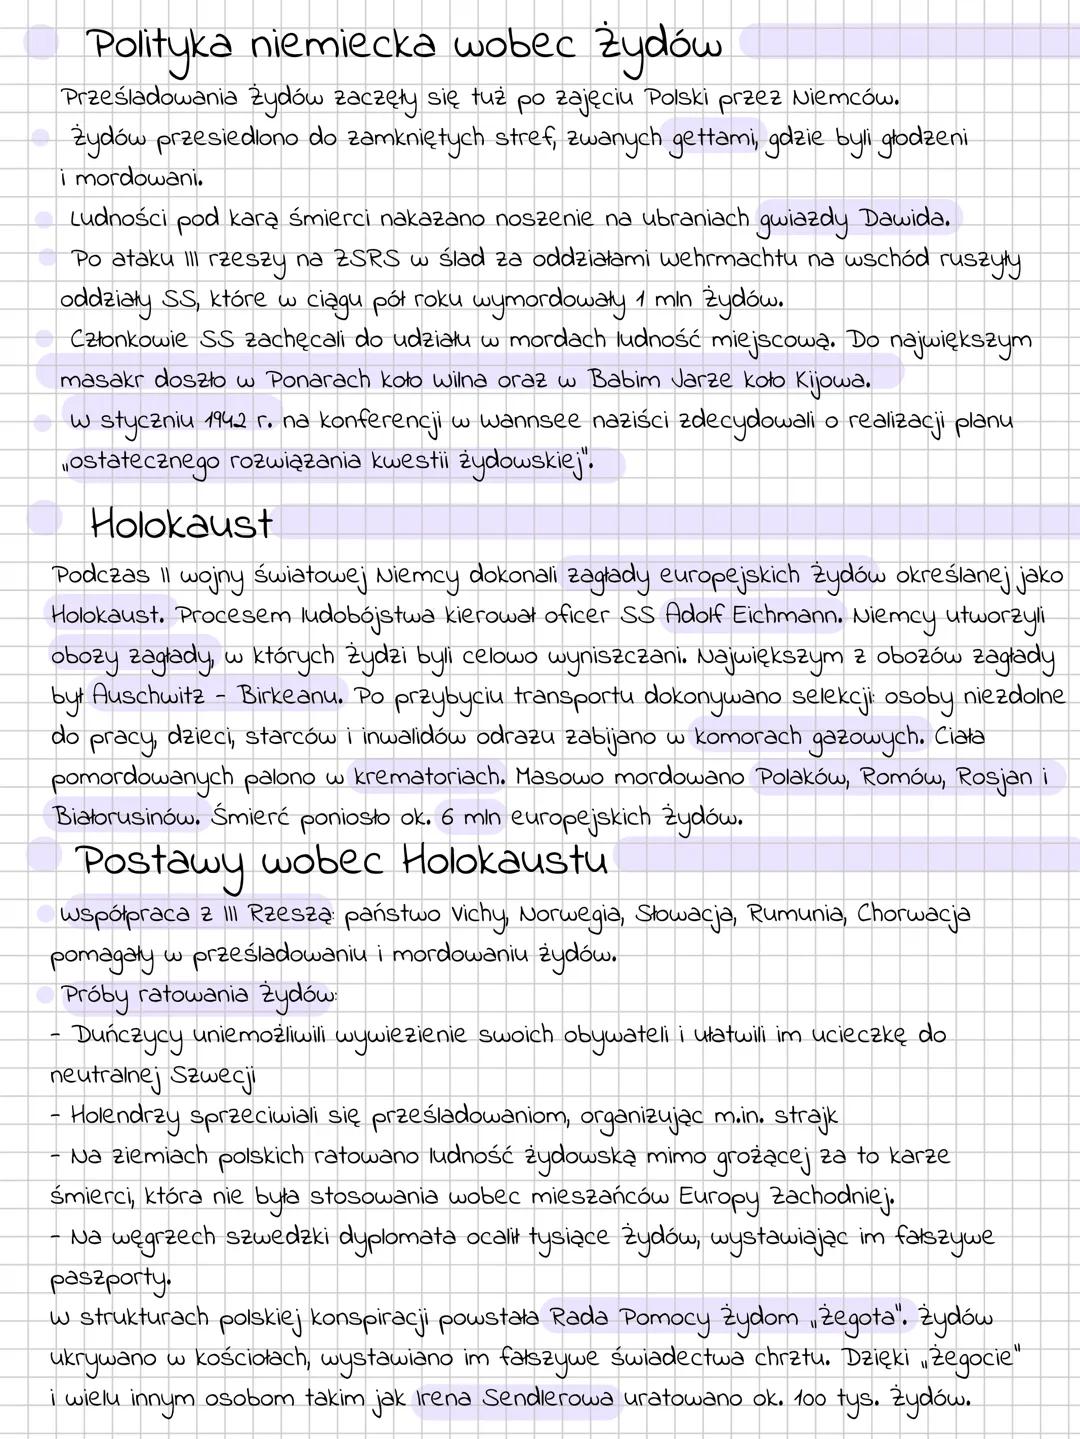 Polityka niemiecka wobec Żydów
Prześladowania Żydów zaczęły się tuż po zajęciu Polski przez Niemców.
Żydów przesiedlono do zamkniętych stref, zwanych gettami, gdzie byli głodzeni
i mordowani.
Ludności pod karą śmierci nakazano noszenie na ubraniach gwiazdy Dawida.
Po ataku III rzeszy na ZSRS w ślad za oddziałami Wehrmachtu na wschód ruszyły
oddziały SS, które w ciągu pół roku wymordowały 1 mln Żydów.
Członkowie SS zachęcali do udziału w mordach ludność miejscową. Do największym
masakr doszło w Ponarach koło Wilna oraz w Babim Jarze koło Kijowa.
W styczniu 1942 r. na konferencji w Wannsee naziści zdecydowali o realizacji planu
„ostatecznego rozwiązania kwestii żydowskiej".
Holokaust
Podczas II wojny światowej Niemcy dokonali zagłady europejskich Żydów określanej jako
Holokaust. Procesem ludobójstwa kierował oficer SS Adolf Eichmann. Niemcy utworzyli
obozy zagłady, w których Żydzi byli celowo wyniszczani. Największym z obozów zagłady
był Auschwitz - Birkeanu. Po przybyciu transportu dokonywano selekcji: osoby niezdolne
do pracy, dzieci, starców i inwalidów odrazu zabijano w komorach gazowych. Ciała
pomordowanych palono w krematoriach. Masowo mordowano Polaków, Romów, Rosjan i
Białorusinów. Śmierć poniosło ok. 6 mln europejskich Żydów.
Postawy wobec Holokaustu
Współpraca z III Rzeszą: państwo Vichy, Norwegia, Słowacja, Rumunia, Chorwacja
pomagały w prześladowaniu i mordowaniu Żydów.
Próby ratowania Żydów:
- Duńczycy uniemożliwili wywiezienie swoich obywateli i ułatwili im ucieczkę do
neutralnej Szwecji
- Holendrzy sprzeciwiali się prześladowaniom, organizując m.in. strajk
- Na ziemiach polskich ratowano ludność żydowską mimo grożącej za to karze
śmierci, która nie była stosowania wobec mieszańców Europy Zachodniej.
- Na węgrzech szwedzki dyplomata ocalił tysiące Żydów, wystawiając im fałszywe
paszporty.
W strukturach polskiej konspiracji powstała Rada Pomocy Żydom „Żegota". Żydów
ukrywano w kościołach, wystawiano im fałszywe świadectwa chrztu. Dzięki „Żegocie"
i wielu innym osobom takim jak Irena Sendlerowa uratowano ok. 100 tys. Żydów.